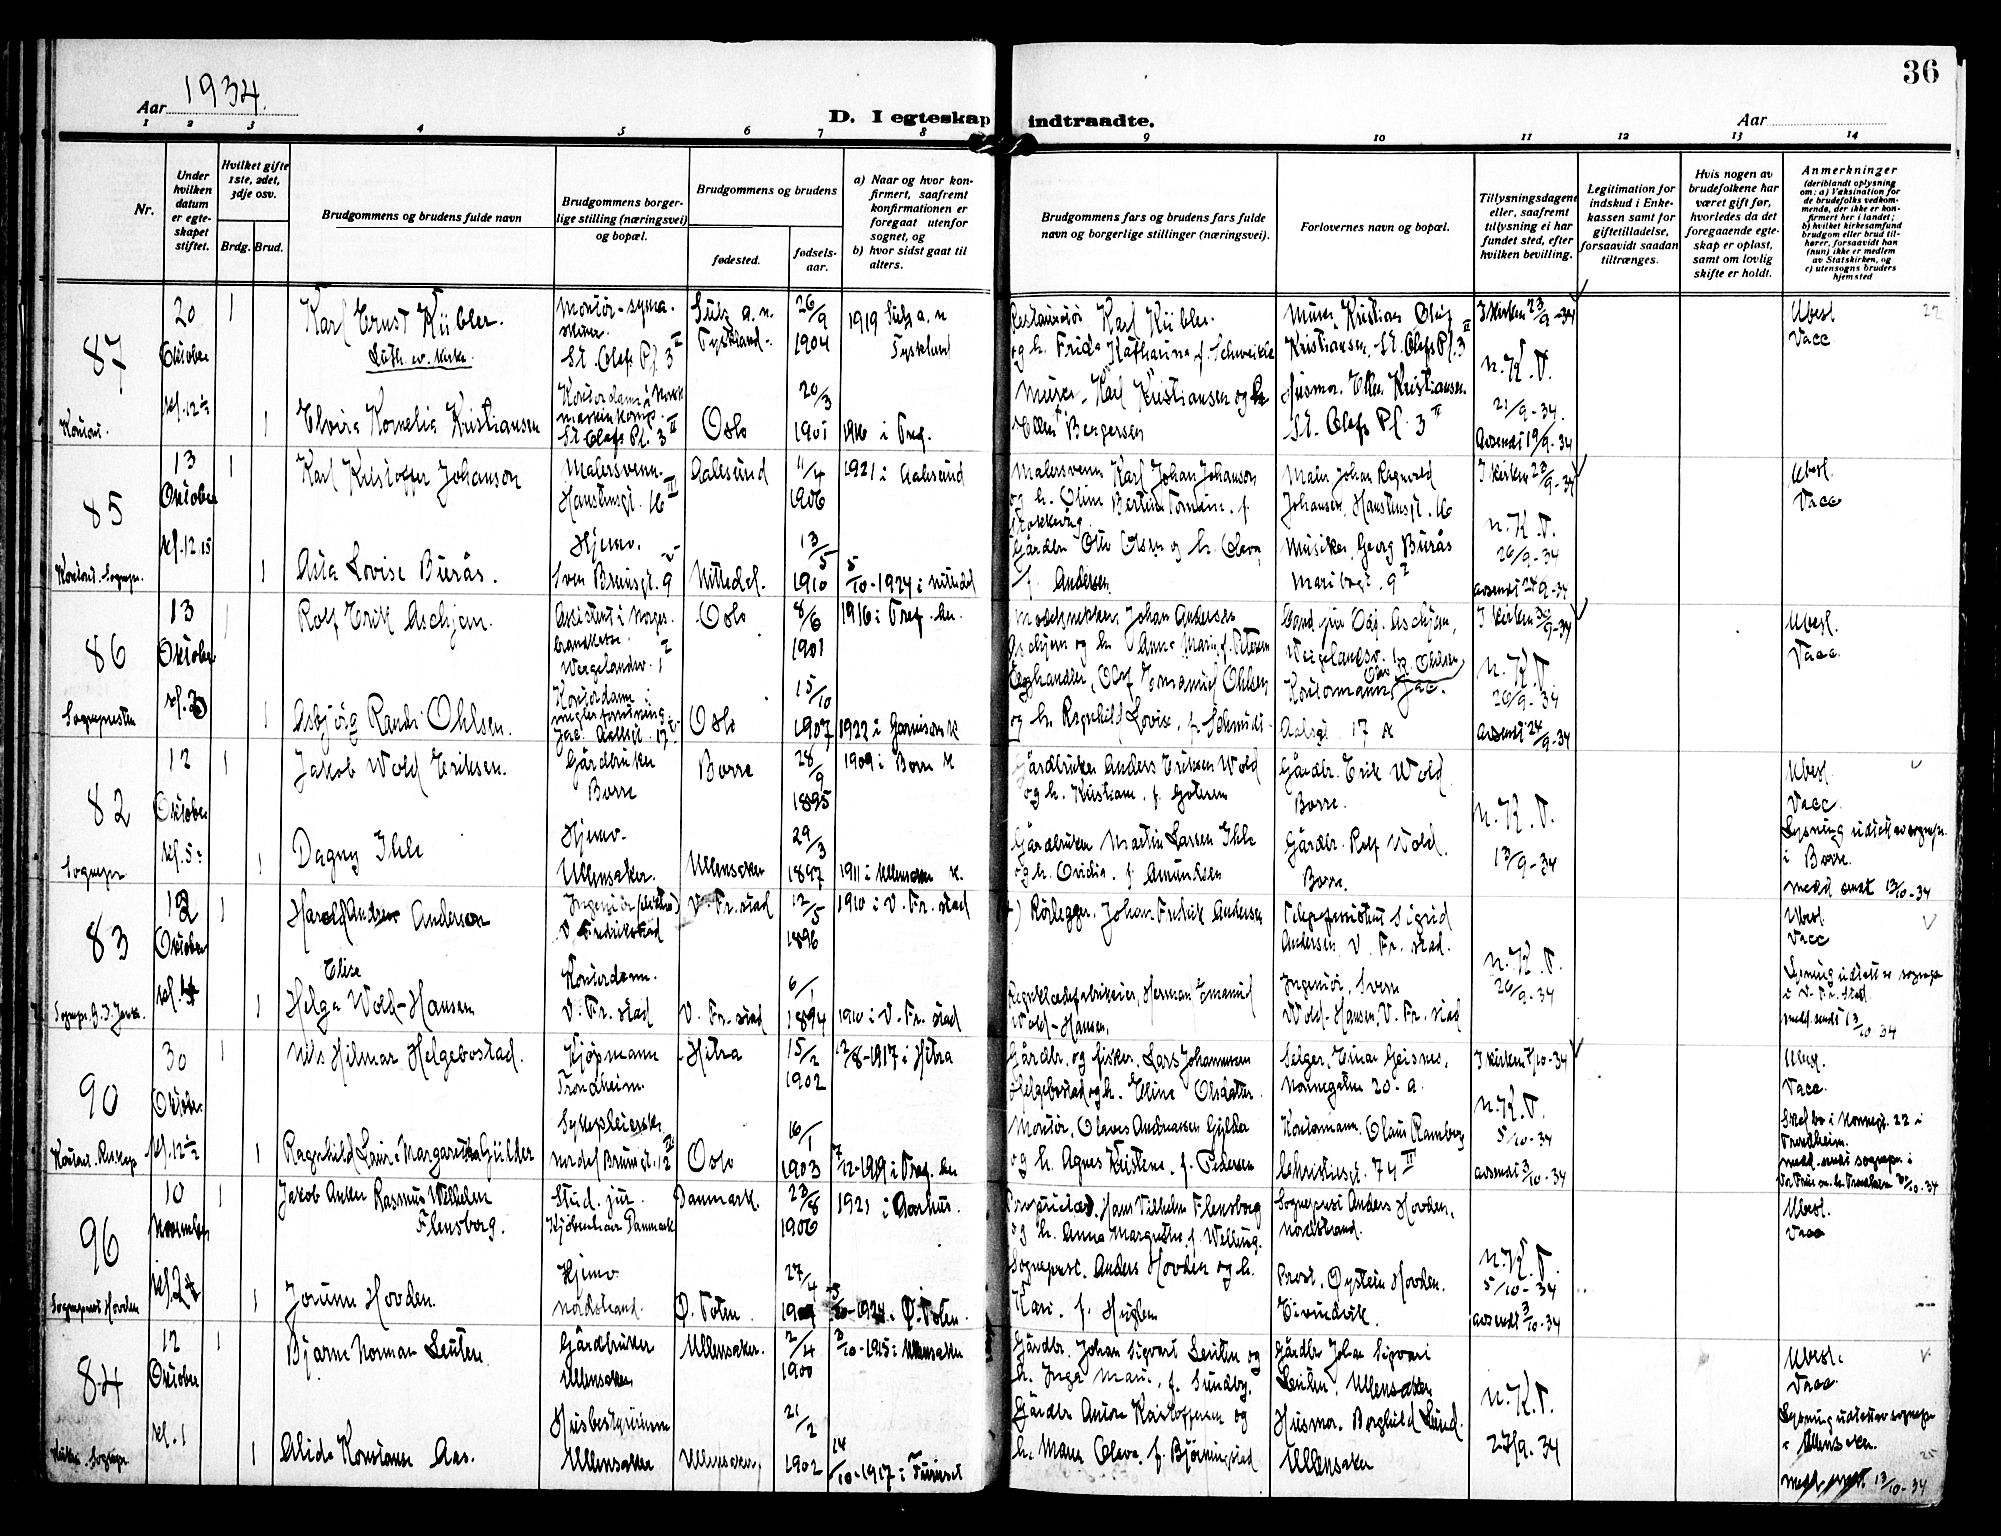 Aar 1934.
D. I egteskap indtraadte.
Aar
36
1 2 3 4 5 6 7 8 9 10 11 12 13 14
Nr.
Under hvilken datum er egteskapet stiftet.
Hvilket gifte 1ste, 2det, 3dje osv.
Brdg. Brud.
Brudgommens og brudens fulde navn
Brudgommens borgerlige stilling (næringsvei) og bopæl.
Brudgommens og brudens
fødested.
fødselsaar.
a) Naar og hvor konfirmert, saafremt konfirmationen er foregaat utenfor sognet, og
b) hvor sidst gaat til alters.
Brudgommens fars og brudens fars fulde navn og borgerlige stillinger (næringsvei).
Forlovernes navn og bopæl.
Tillysningsdagene eller, saafremt tillysning ei har fundet sted, efter hvilken bevilling.
Legitimation for indskud i Enkekassen samt for giftetilladelse, forsaavidt saadan tiltrænges.
Hvis nogen av brudefolkene har været gift før, hvorledes da det foregaaende egteskap er opløst, samt om lovlig skifte er holdt.
Anmerkninger
(deriblandt oplysning om: a) Vaksination for de brudefolks vedkommende, der ikke er konfirmert her i landet; b) hvilket kirkesamfund brudgom eller brud tilhører, forsaavidt han (hun) ikke er medlem av Statskirken, og c) utensogns bruders hjemsted
87
20 Oktober kl. 12½
1
Karl Ernst Kübler.
Luth. ev. kirke.
Montør-syma-
St. Olafs Pl. 3 II
Sulz a. n. Tyskland.
26/9 1904
1919 Sulz a. n. Tyskland
Karl Kübler.
og h. Frida Katharina f.
Kristian Olaf Kristiansen, St. Olafs Pl. 3 II
I kirken 23/9-34
n. K. V.
21/9-34.
avsendt 19/9-34
Ubesl.
Vacc
22
1
Elvira Kornelia Kristiansen
Kontordame i Norsk maskinkomp.
St. Olafs Pl. 3 II
Oslo
20/3 1901
1916 i Tref.
Murer Karl Kristiansen og h.
Ellen Bergersen
Husmor. Ellen Kristiansen.
St. Olafs Pl. 3 II
85
13 Oktober kl. 12.15
1
Karl Kristoffer Johanson
Malersvenn.
Hanstensgt. 16 III
Aalesund
11/4 1906
1921 i Aalesund
Malersvenn Karl Johan Johanson
Maler Johan Ragnvald Johansen, Hanstensgt. 16
I kirken 23/9-34
n. K. V.
26/9-34
avsendt 24/9-34
Ubesl.
Vacc
1
Asta Lovise Burås.
Hjemv.
Sven Bruunsgt. 9
Nittedal.
13/5 1910
5/10-1924 i Nittedal
Gårdbr. Otto Olsen og h. Olava
f. Andersen
Musiker, Georg Burås
Maribogt. 9 2
86
13 Oktober
Sognepresten
1
Rolf Erik Aschjem.
Assistent i Norges
Wergelandsv. 1 2
Oslo
8/6 1901
1916 i Tref. kir.
Johan Andersen
Aschjem og h. Anna Marie f. Petersen
Cand. jur. Aschjem,
Wergelandsv. 1
I kirken 30/9-34
n. K. V.
26/9-34
avsendt 24/9-34
Ubesl.
Vacc.
1
Asbjörg Randi Ohlsen.
Kontordame i
Jac. Aallsgt. 17
Oslo
15/10 1907
1922 i Garnisons K
Olaf Emanuel Ohlsen
og h. Ragnhild Lovise, f. Schmidt
Kontormann, Jac.
Aalsgt 17 A
82
12 Oktober kl. 5
Sognepr
1
Jakob Wold Eriksen.
Gårdbruker
Borre
Borre
28/9 1895
1909 i Borre K
Gårdbruker Anders Eriksen Wold
og h. Kristiane f.
Gårdbr. Erik Wold
Borre.
n. K. V.
13/9-34
Ubesl.
Vacc.
Lysning utstedt av sognepr.
i Borre.
medd sendt 13/10-34
1
Dagny Ihle
Hjemv.
Ullensaker.
Ullensaker
29/3 1897
1911 i Ullensaker K.
Gårdbruker Martin Larsen Ihle
og h. Ovidia. f. Amundsen
Gårdbr. Rolf Wold.
Borre.
83
12 Oktober
1
Harald Andreas Anderson
Ingeniør (elektro)
V. Fredrikstad
V. Fr. stad
12/5 1896
1910 i V. Fr. stad
Rørlegger. Johan Fredrik Andersen
Telegrafistinne Sigrid
Andersen V. Fr. stad.
n. K. V.
26/9-34
Ubesl.
Vacc
Lysning utstedt av sognepr
i V. Fr. stad.
medd. sendt 13/10 34
1
Elise
Helga Wold-Hansen
Kontordame.
V. Fr. stad
V. Fr. stad
6/1 1894
1910 i V. Fr. stad
Herman Emanuel
Wold-Hansen,
Ingeniør, Sven
Wold-Hansen, V. Fr. stad
90
30 Oktober kl. 12½
1
Nils Hilmar Helgebostad.
Kjøpmann
Trondheim.
Hitra
15/2 1902
12/8-1917 i Hitra
Gårdbr. og fisker. Lars Johannesen
Helgebostad og h. Eline Olsdatter
Selger, Einar Geisnes,
Nonnegaten 20. a.
I kirken 7/10-34
n. K. V.
5/10-34
avsendt 3/10-34
Ubesl.
Vacc.
Skal bo i Nonnegt. 22 i
Trondheim.
medd. sendt sognepr. i
1
Ragnhild Margaretha Gulder
Sykepleierske
Nordal Brunsgt. 12 III
Oslo
16/1 1903
Montør, Olaves Andreassen Gylder
og h. Agnes Kristine. f. Pedersen
Kontormann. Olaus Ramberg
Christiesgt. 74 II
96
10 November
Sogneprest Hovden
1
Jakob Anker Rasmus Wilhelm
Flensborg.
Stud. jur.
Kjøbenhavn Danmark
Danmark.
23/8 1906
1921 i Aarhus.
Proprietær. Hans Vilhelm Flensborg
og h. Anna Margrethe f. Welling.
Sogneprest Anders Hovden,
Nordstrand.
n. K. V.
5/10-34
avsendt 3/10-34
Ubesl.
Vacc
1
Jorunn Hovden.
Hjemv
Nordstrand.
Ø. Toten.
27/4
1924 i Ø. Toten.
Sogneprest. Anders Hovden og h.
Kari. f. Huglen
Prost. Øystein Hovden.
Eivindvik.
84
12 Oktober kl. 1
1
Bjarne Norman Leuten
Gårdbruker
Ullensaker
Ullensaker.
2/4 1900
3/10-1915 i Ullensaker
Gårdbr. Johan Sigvart Leuten og
h. Inga Marie, f. Sundby.
Gårdbr Johan Sigvart
Leuten. Ullensaker
n. K. V.
27/9-34
Ubesl.
Vacc
Lysning utstedt av sognepr
i Ullensaker.
medd. sendt. 13/10-34
25
1
Alida Konstanse Aas.
Husbestyrerinne
Ullensaker
Ullensaker,
21/2 1902
14/10-1917 i Furuset
Gårdbr Anton Kristoffersen og
h. Maren Olava. f. Bjørningstad
Husmor. Borghild Lund.
Ullensaker